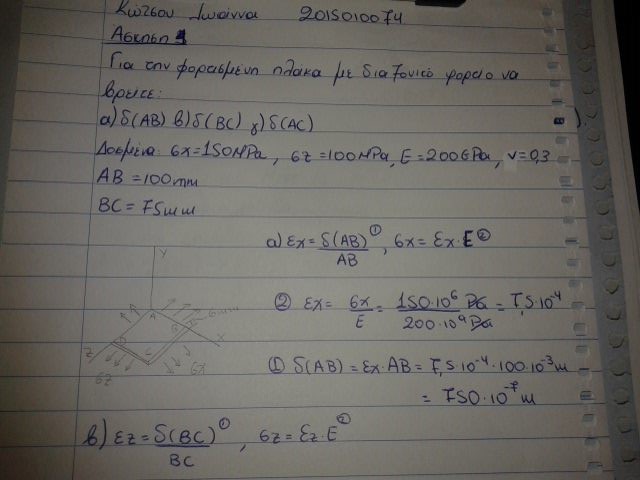 Κώτσου Ιωάννα 2015010074
Άσκηση 1
Για την φορτισμένη πλάκα με διαξονικό φορτίο να
βρείτε:
α) δ(AB) β) δ(BC) γ) δ(AC)
Δοσμένα: σx = 150 MPa, σz = 100 MPa, E = 200 GPa, ν = 0,3
AB = 100 mm
BC = 75 mm
α) εx = δ(AB)/AB ①, σx = εx·E ②
② εx = σx/E = 150·10⁶ Pa / 200·10⁹ Pa = 7,5·10⁻⁴
① δ(AB) = εx·AB = 7,5·10⁻⁴·100·10⁻³ m
= 750·10⁻⁷ m
Y
A
B
σzmm
X
Z
D
C
σx
σz
β) εz = δ(BC)/BC ①, σz = εz·E ②